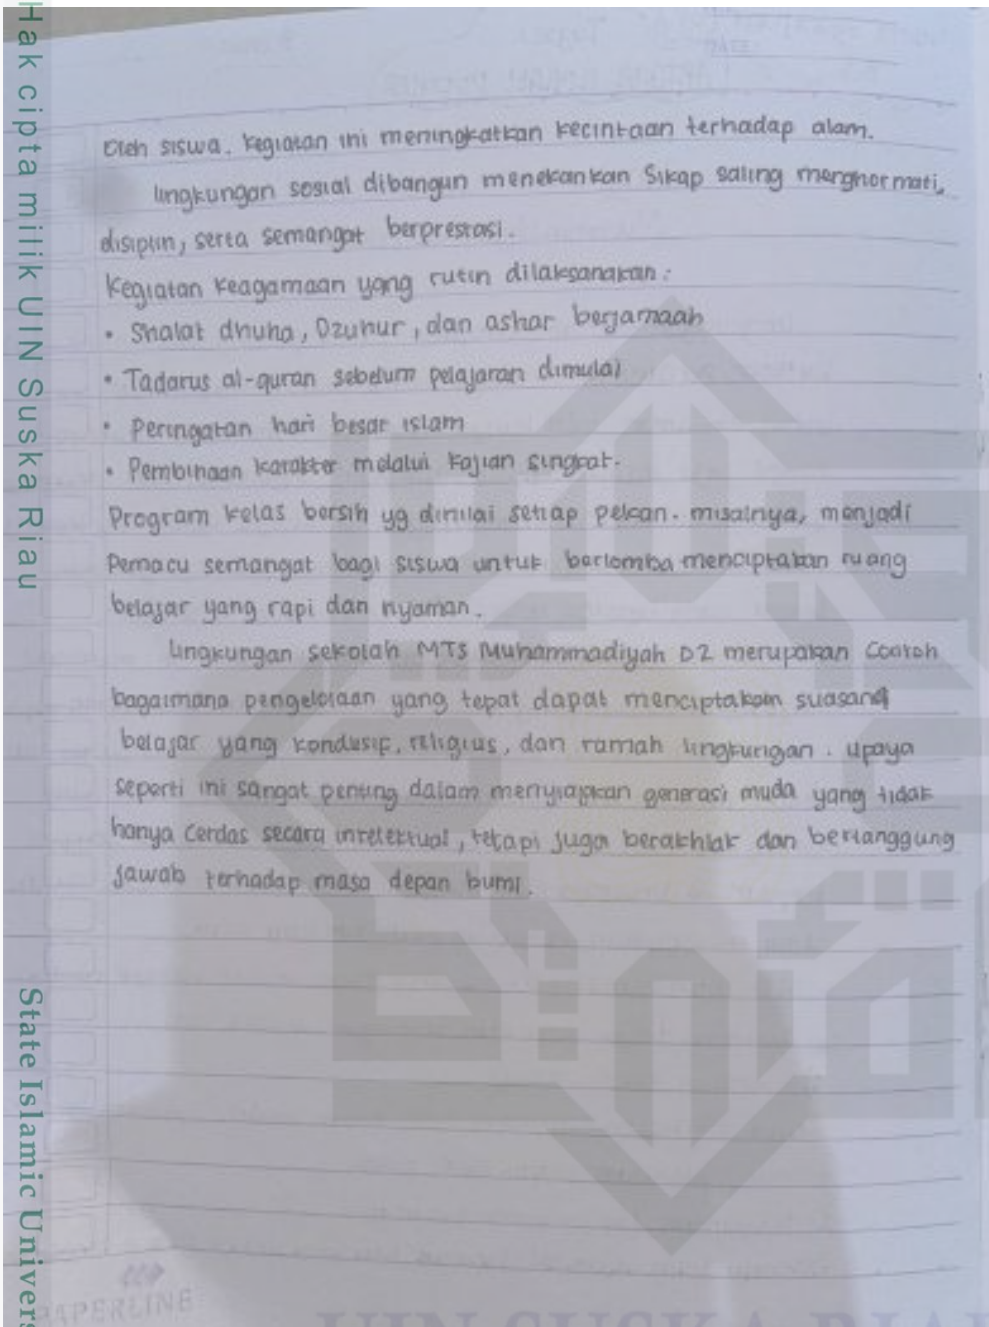 Oleh siswa. kegiatan ini meningkatkan kecintaan terhadap alam.
lingkungan sosial dibangun menekankan Sikap saling menghormati,
disiplin, serta semangat berprestasi.
Kegiatan keagamaan yang rutin dilaksanakan:
• Shalat dhuha, Dzuhur, dan ashar berjamaah
• Tadarus al-quran sebelum pelajaran dimulai
• Peringatan hari besar islam
• Pembinaan karakter melalui kajian singkat.
Program kelas bersih yg dinilai setiap pekan. misalnya, menjadi
Pemacu semangat bagi siswa untuk berlomba menciptakan ruang
belajar yang rapi dan nyaman.
lingkungan sekolah MTS Muhammadiyah 02 merupakan Contoh
bagaimana pengelolaan yang tepat dapat menciptakan suasana
belajar yang kondusif, religius, dan ramah lingkungan. upaya
seperti ini sangat penting dalam menyiapkan generasi muda yang tidak
hanya Cerdas secara intelektual, tetapi juga berakhlak dan bertanggung
jawab terhadap masa depan bumi.
PAPERLINE
Hak cipta milik UIN Suska Riau
State Islamic Univers
UIN SUSKA RIAU